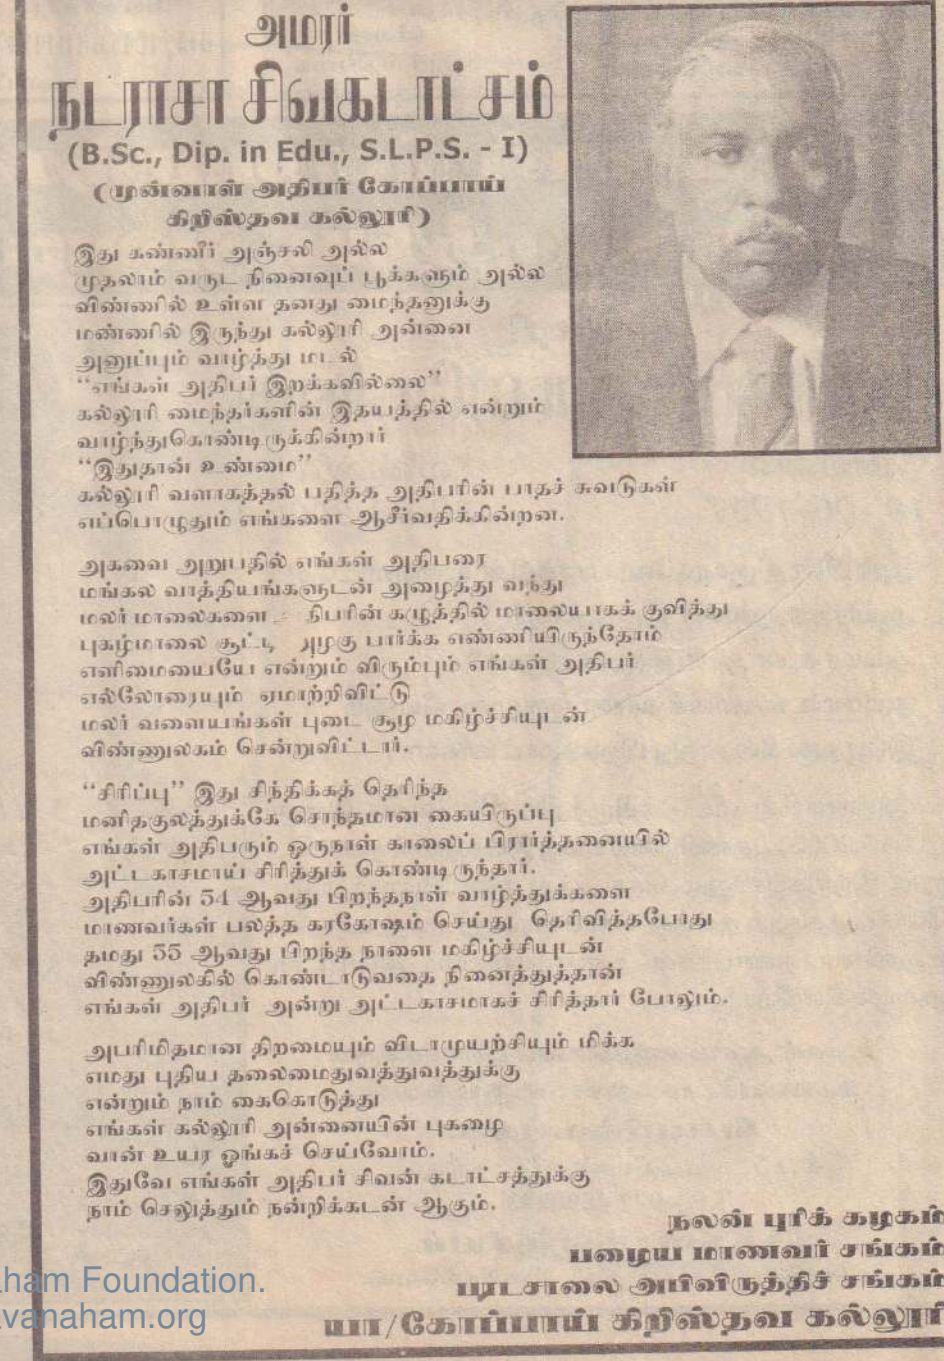 அமரர்
நடராசா சிவகடாட்சம்
(B.Sc., Dip. in Edu., S.L.P.S. - I)
(முன்னாள் அதிபர் கோப்பாய்
கிறிஸ்தவ கல்லூரி)
இது கண்ணீர் அஞ்சலி அல்ல
முதலாம் வருட நினைவுப் பூக்களும் அல்ல
விண்ணில் உள்ள தனது மைந்தனுக்கு
மண்ணில் இருந்து கல்லூரி அன்னை
அனுப்பும் வாழ்த்து மடல்
“எங்கள் அதிபர் இறக்கவில்லை”
கல்லூரி மைந்தர்களின் இதயத்தில் என்றும்
வாழ்ந்துகொண்டிருக்கின்றார்
“இதுதான் உண்மை”
கல்லூரி வளாகத்தல் பதித்த அதிபரின் பாதச் சுவடுகள்
எப்பொழுதும் எங்களை ஆசீர்வதிக்கின்றன.
அகவை அறுபதில் எங்கள் அதிபரை
மங்கல வாத்தியங்களுடன் அழைத்து வந்து
மலர் மாலைகளை திபரின் கழுத்தில் மாலையாகக் குவித்து
புகழ்மாலை சூட்டி அழகு பார்க்க எண்ணியிருந்தோம்
எளிமையையே என்றும் விரும்பும் எங்கள் அதிபர்
எல்லோரையும் ஏமாற்றிவிட்டு
மலர் வளையங்கள் புடை சூழ மகிழ்ச்சியுடன்
விண்ணுலகம் சென்றுவிட்டார்.
“சிரிப்பு” இது சிந்திக்கத் தெரிந்த
மனிதகுலத்துக்கே சொந்தமான கையிருப்பு
எங்கள் அதிபரும் ஒருநாள் காலைப் பிரார்த்தனையில்
அட்டகாசமாய் சிரித்துக் கொண்டிருந்தார்.
அதிபரின் 54 ஆவது பிறந்தநாள் வாழ்த்துக்களை
மாணவர்கள் பலத்த கரகோஷம் செய்து தெரிவித்தபோது
தமது 55 ஆவது பிறந்த நாளை மகிழ்ச்சியுடன்
விண்ணுலகில் கொண்டாடுவதை நினைத்துத்தான்
எங்கள் அதிபர் அன்று அட்டகாசமாகச் சிரித்தார் போலும்.
அபரிமிதமான திறமையும் விடாமுயற்சியும் மிக்க
எமது புதிய தலைமைதுவத்துவத்துக்கு
என்றும் நாம் கைகொடுத்து
எங்கள் கல்லூரி அன்னையின் புகழை
வான் உயர ஓங்கச் செய்வோம்.
இதுவே எங்கள் அதிபர் சிவன் கடாட்சத்துக்கு
நாம் செலுத்தும் நன்றிக்கடன் ஆகும்.
நலன் புரிக் கழகம்
பழைய மாணவர் சங்கம்
பாடசாலை அபிவிருத்திச் சங்கம்
யா/கோப்பாய் கிறிஸ்தவ கல்லூரி
aham Foundation.
avanaham.org